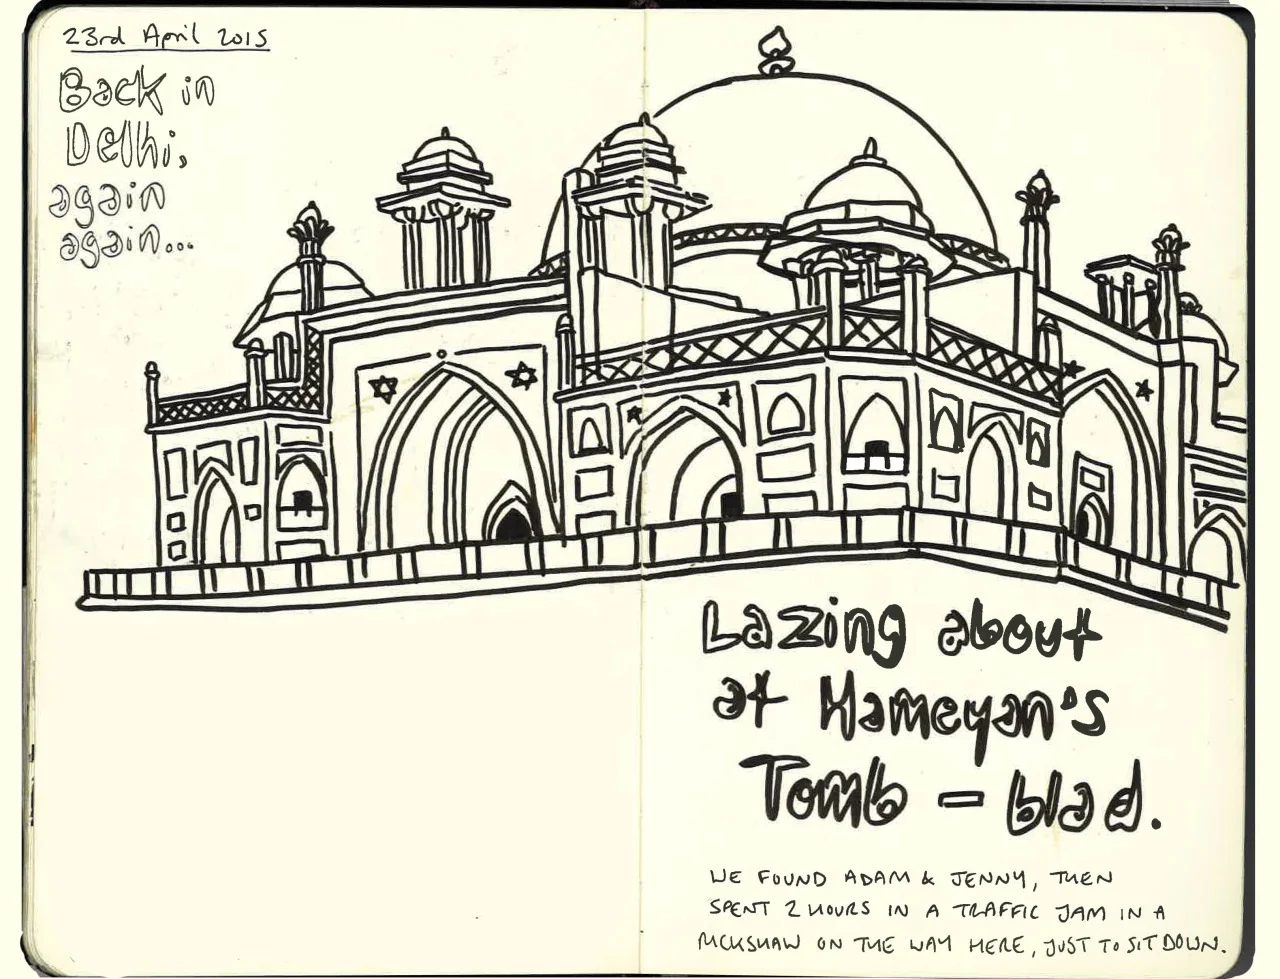 23rd April 2015
Back in
Delhi,
again
again...
Lazing about
at Hameyan's
Tomb - blad.
WE FOUND ADAM & JENNY, THEN
SPENT 2 HOURS IN A TRAFFIC JAM IN A
RICKSHAW ON THE WAY HERE, JUST TO SIT DOWN.